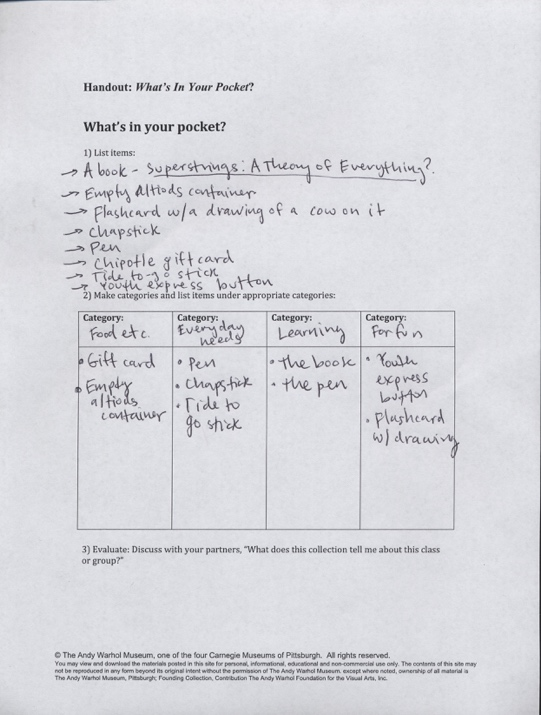 Handout: What's In Your Pocket?
What's in your pocket?
1) List items:
→ A book - Superstrings: A Theory of Everything?
→ Empty Altiods container
→ Flashcard w/a drawing of a cow on it
→ Chapstick
→ Pen
→ Chipotle gift card
→ Tide to-go stick
→ Youth express button
2) Make categories and list items under appropriate categories:
Category:
Food etc.
• Gift card
• Empty
altiods
container
Category:
Everyday
needs
• Pen
• Chapstick
• Tide to
go stick
Category:
Learning
• the book
• the pen
Category:
For fun
• Youth
express
button
• Flashcard
w/ drawing
3) Evaluate: Discuss with your partners, "What does this collection tell me about this class
or group?"
© The Andy Warhol Museum, one of the four Carnegie Museums of Pittsburgh. All rights reserved.
You may view and download the materials posted in this site for personal, informational, educational and non-commercial use only. The contents of this site may
not be reproduced in any form beyond its original intent without the permission of The Andy Warhol Museum. except where noted, ownership of all material is
The Andy Warhol Museum, Pittsburgh; Founding Collection, Contribution The Andy Warhol Foundation for the Visual Arts, Inc.